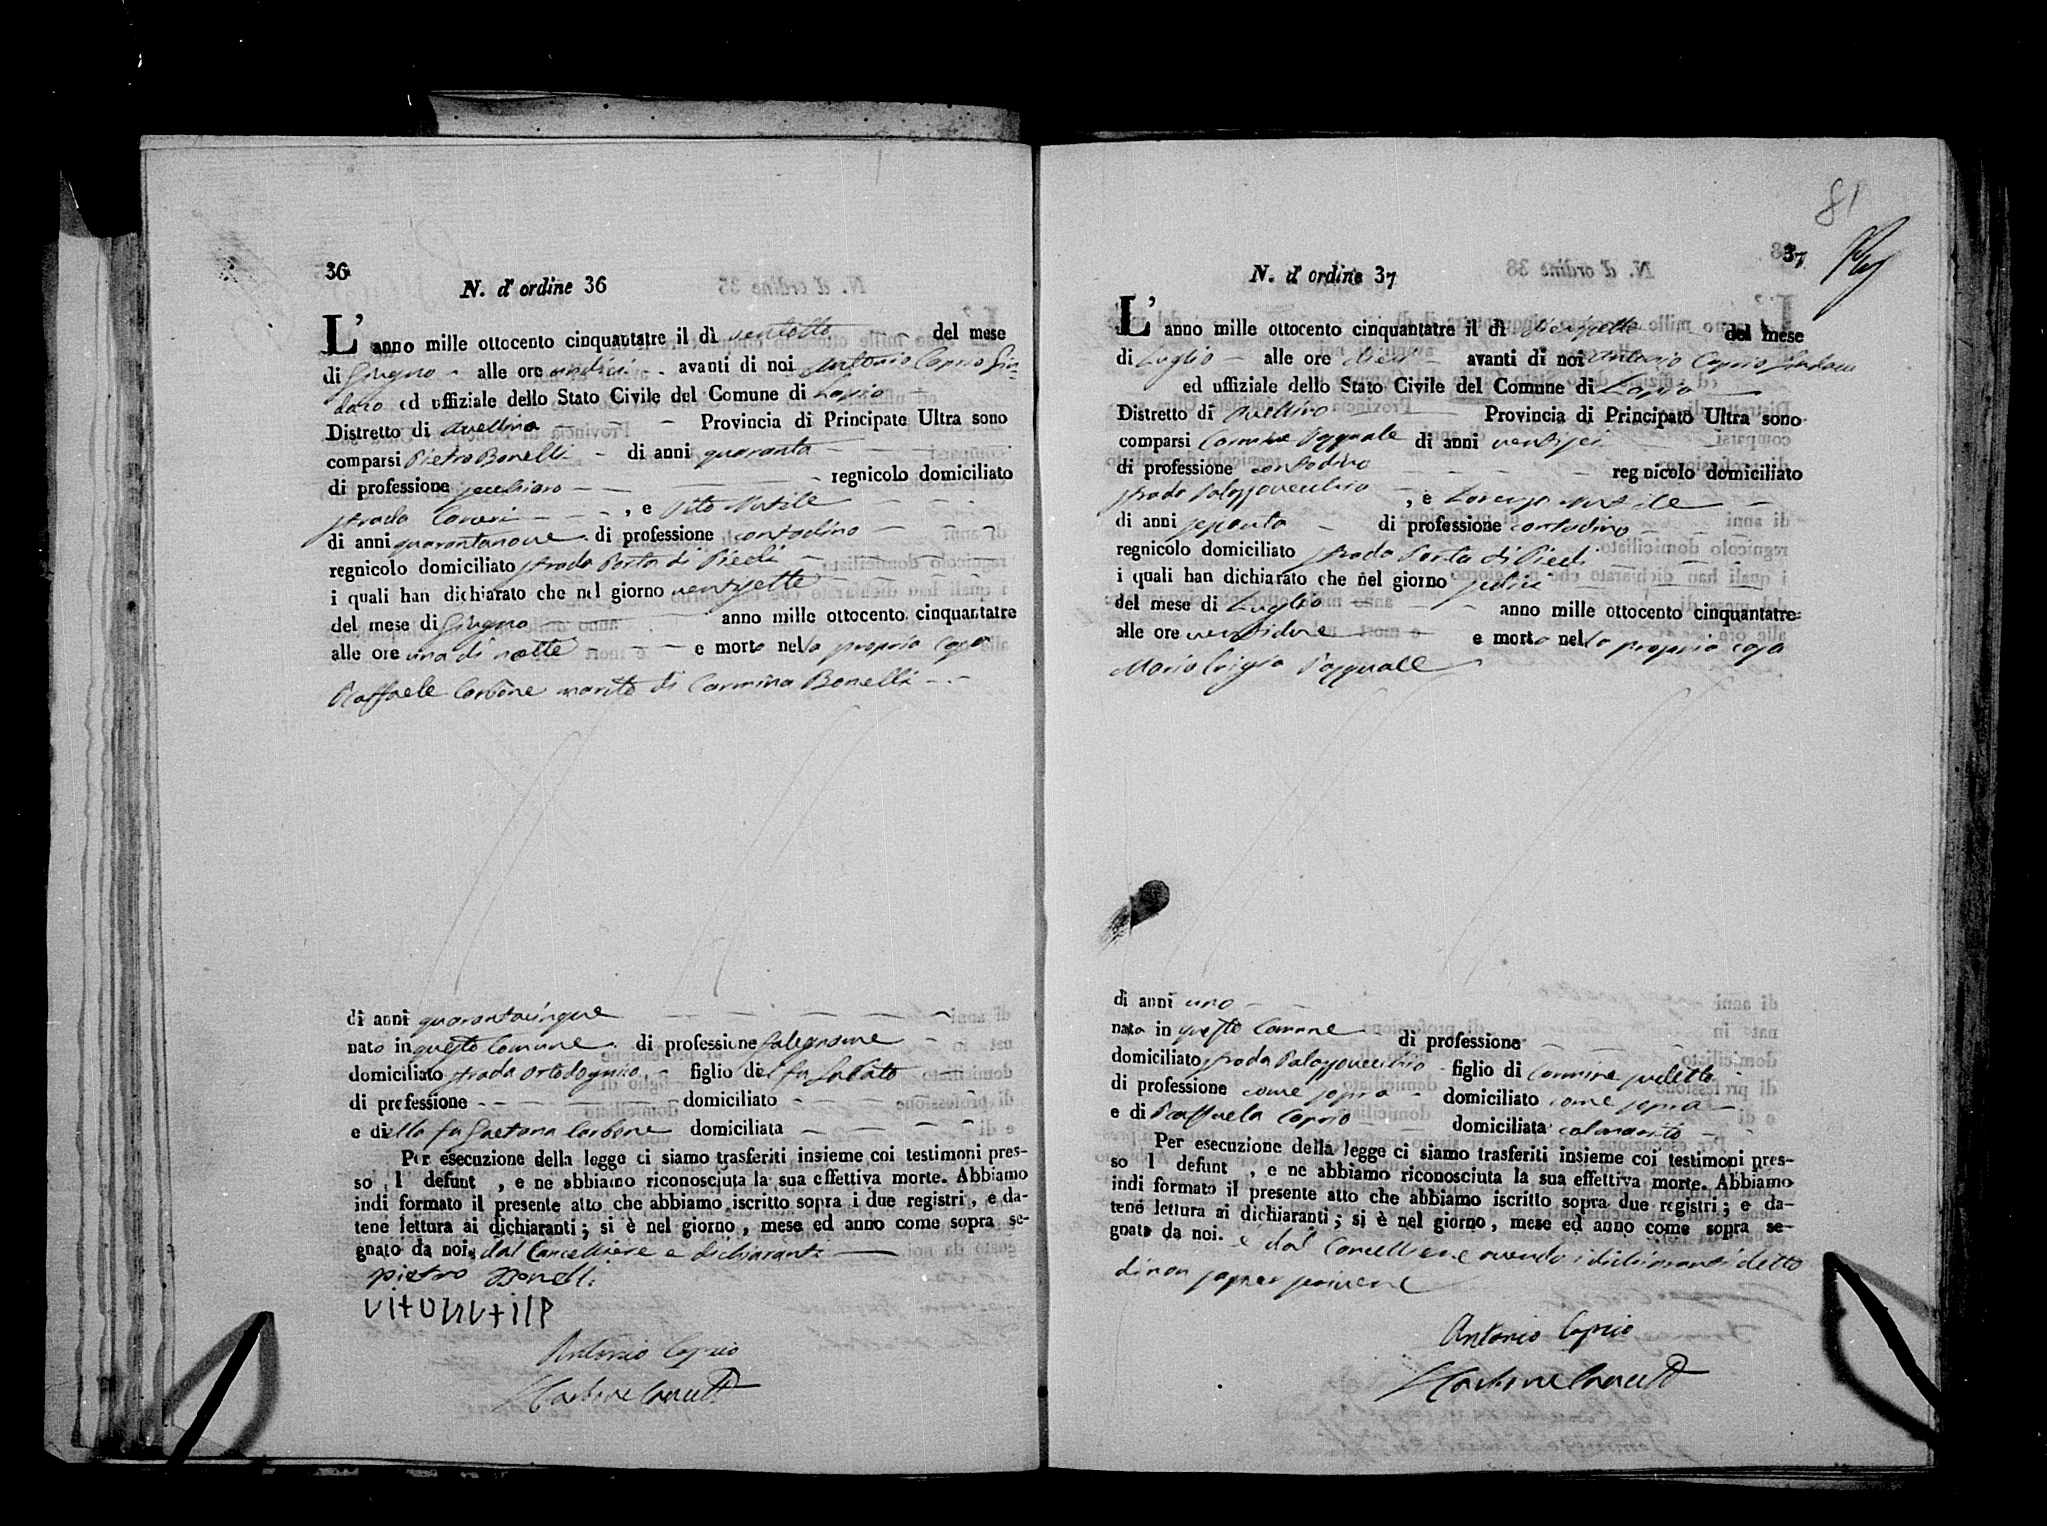 36
N. d'ordine 36
L'anno mille ottocento cinquantatre il dì ventotto del mese
di Giugno alle ore undici avanti di noi Antonio Caprio Sin-
daco ed uffiziale dello Stato Civile del Comune di Lapio
Distretto di Avellino Provincia di Principato Ultra sono
comparsi Pietro Bonelli di anni quaranta
di professione regnicolo domiciliato
strada , e Vito Nutile
di anni quarantanove di professione contadino
regnicolo domiciliato strada Porta di Piedi
i quali han dichiarato che nel giorno ventisette
del mese di Giugno anno mille ottocento cinquantatre
alle ore una di notte e morto nella propria casa
Raffaele Carbone marito di Carmina Bonelli
di anni quarantacinque
nato in questo Comune di professione falegname
domiciliato strada figlio del fu Sabato
di professione domiciliato
e della fu Gaetana Carbone domiciliata
Per esecuzione della legge ci siamo trasferiti insieme coi testimoni pres-
so l defunt , e ne abbiamo riconosciuta la sua effettiva morte. Abbiamo
indi formato il presente atto che abbiamo iscritto sopra i due registri, e da-
tene lettura ai dichiaranti; si è nel giorno, mese ed anno come sopra se-
gnato da noi, dal Cancelliere e dichiaranti
pietro Bonelli
vito nutile
Antonio Caprio
81
37
N. d'ordine 37
L'anno mille ottocento cinquantatre il dì del mese
di Luglio alle ore dieci avanti di noi Antonio Caprio Sindaco
ed uffiziale dello Stato Civile del Comune di Lapio
Distretto di Avellino Provincia di Principato Ultra sono
comparsi Carmine Pasquale di anni ventisei
di professione contadino regnicolo domiciliato
strada Palazzovecchio , e Lorenzo Nutile
di anni sessanta di professione contadino
regnicolo domiciliato strada Porta di Piedi
i quali han dichiarato che nel giorno sedici
del mese di Luglio anno mille ottocento cinquantatre
alle ore ventidue e morta nella propria casa
Maria Crigia Pasquale
di anni uno
nata in questo Comune di professione
domiciliato strada Palazzovecchio figlio di Carmine sudetto
di professione come sopra domiciliato come sopra
e di Raffaela Caprio domiciliata col marito
Per esecuzione della legge ci siamo trasferiti insieme coi testimoni pres-
so l defunt , e ne abbiamo riconosciuta la sua effettiva morte. Abbiamo
indi formato il presente atto che abbiamo iscritto sopra due registri; e da-
tene lettura ai dichiaranti; si è nel giorno, mese ed anno come sopra se-
gnato da noi. e dal Cancelliere avendo i dichiaranti detto
di non saper scrivere
Antonio Caprio